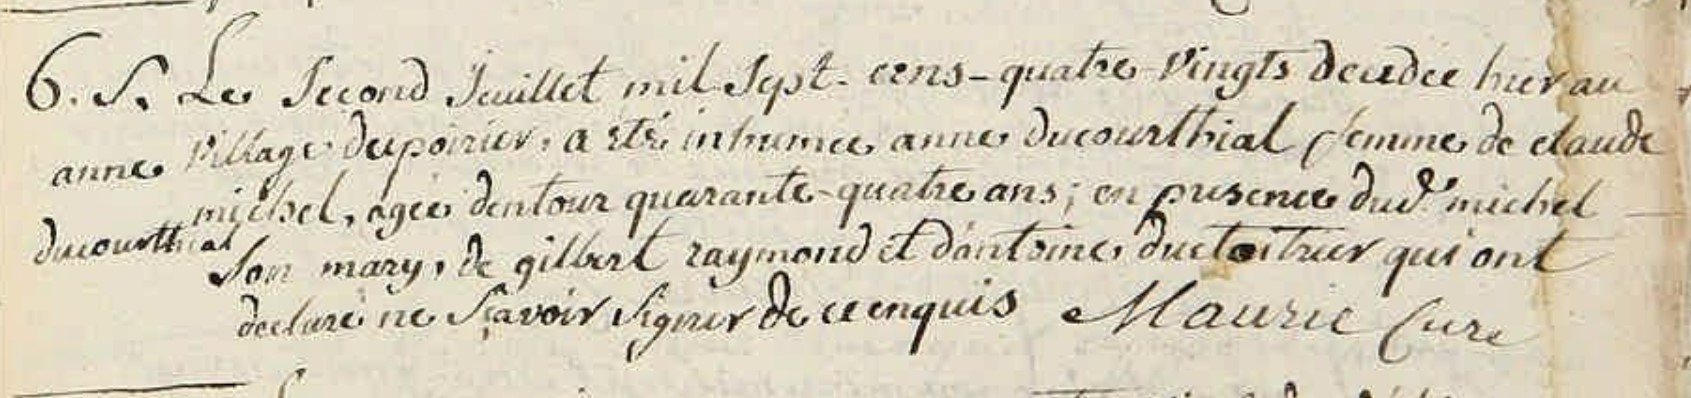 6. S. Le Second Juillet mil Sept. cens-quatre Vingts decedée hier au
anne Village du poirier, a eté inhumée anne ducourthial femme de claude
michel, agée dentour quarante-quatre ans; en presence dud.t michel
ducourthial
Son mary, de gilbert raymond et d'antoine qui ont
declaré ne Sçavoir Signer de ce enquis Maurie Curé